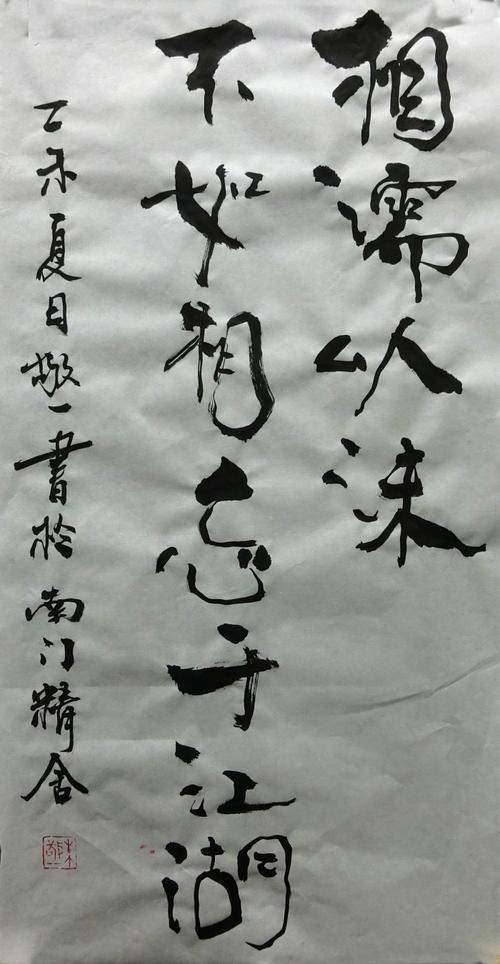 相濡以沫
不如相忘于江湖
丁亥夏日撖一書於南门精舍